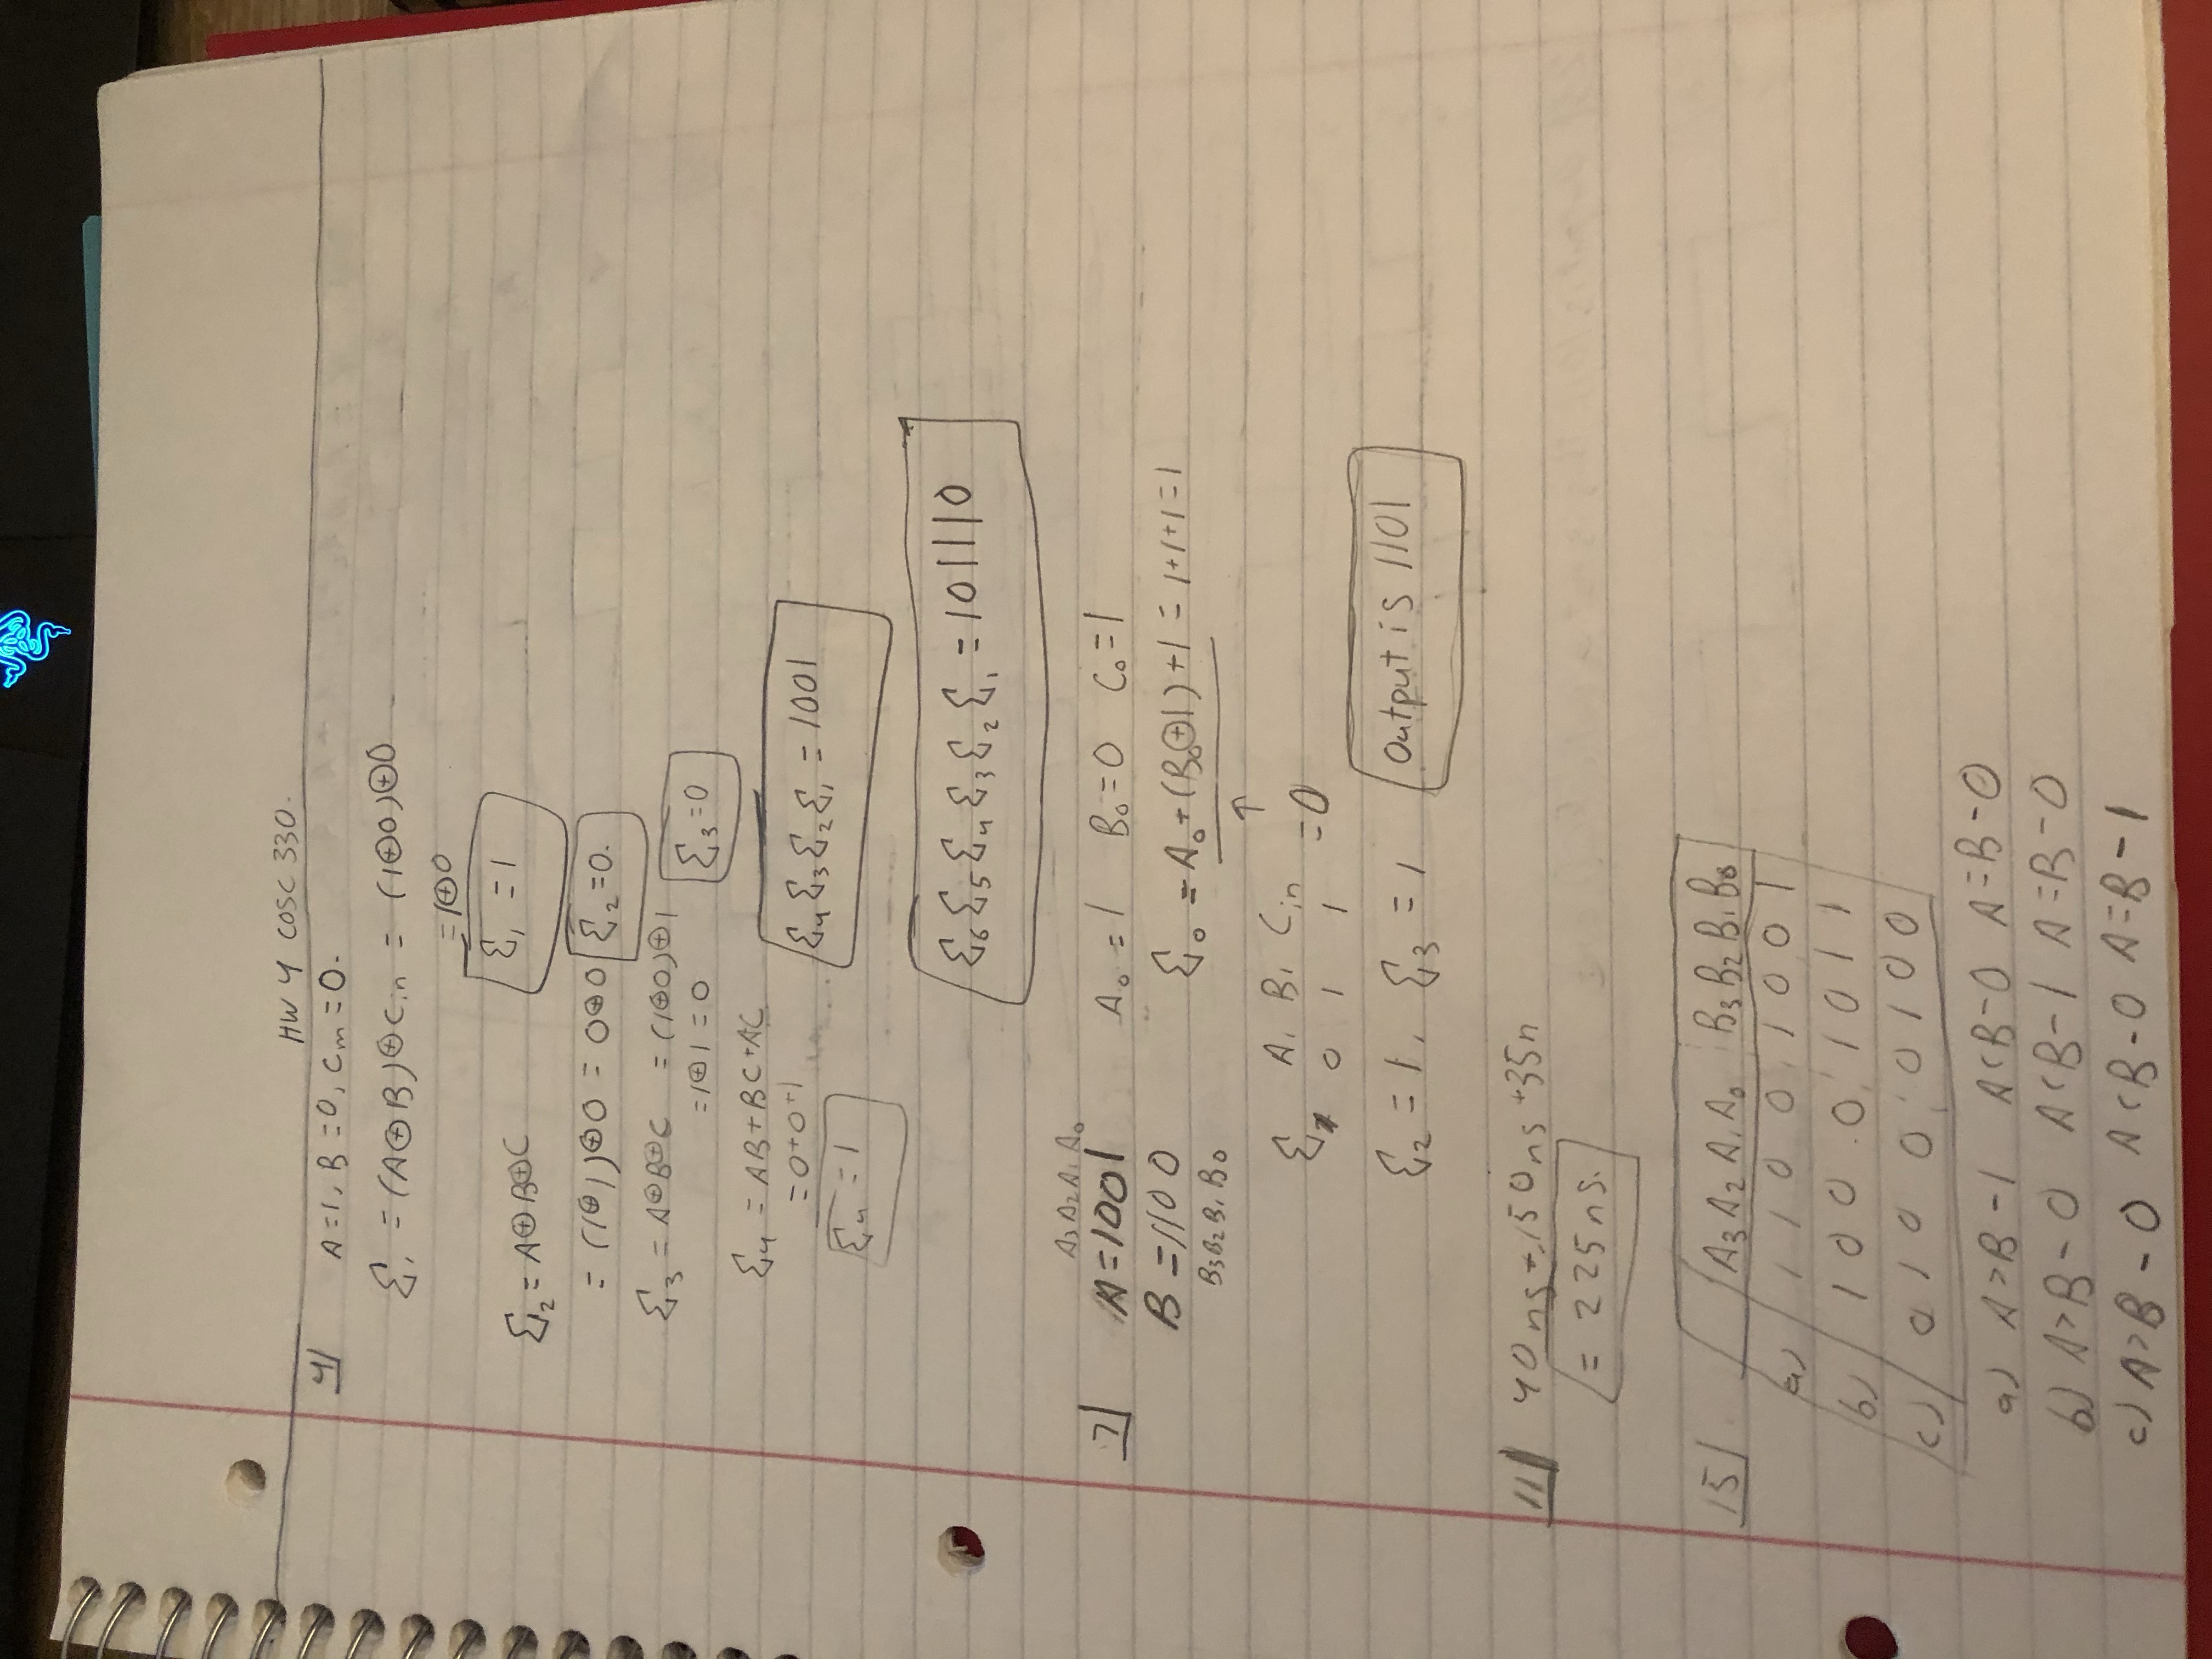 HW 4 COSC 330.
4| A=1, B=0, Cin=0.
Σ₁ = (A⊕B)⊕Cin = (1⊕0)⊕0
= 1⊕0
Σ₁ = 1
Σ₂ = A⊕B⊕C
= (1⊕1)⊕0 = 0⊕0 Σ₂=0.
Σ₃ = A⊕B⊕C = (1⊕0)⊕1
= 1⊕1 = 0 Σ₃=0
Σ₄ = AB+BC+AC
= 0+0+1 Σ₄Σ₃Σ₂Σ₁ = 1001
Σ₄ = 1
Σ₆Σ₅Σ₄Σ₃Σ₂Σ₁ = 101110
A₃A₂A₁A₀
7| A=1001 A₀ = 1 B₀=0 C₀=1
B=1100 Σ₀ = A₀+(B₀⊕1)+1 = 1+1+1=1
B₃B₂B₁B₀ ↑
Σ₁ A₁ B₁ Cin =0
0 1 1
Σ₂ = 1, Σ₃ = 1 Output is 1101
11| 40ns+150ns+35n
= 225ns.
15| A₃A₂A₁A₀ B₃B₂B₁B₀
a) 1 1 0 0 1 0 0 1
b) 1 0 0 0 1 0 1 1
c) 0 1 0 0 0 1 0 0
a) A>B-1 A<B-0 A=B-0
b) A>B-0 A<B-1 A=B-0
c) A>B-0 A<B-0 A=B-1